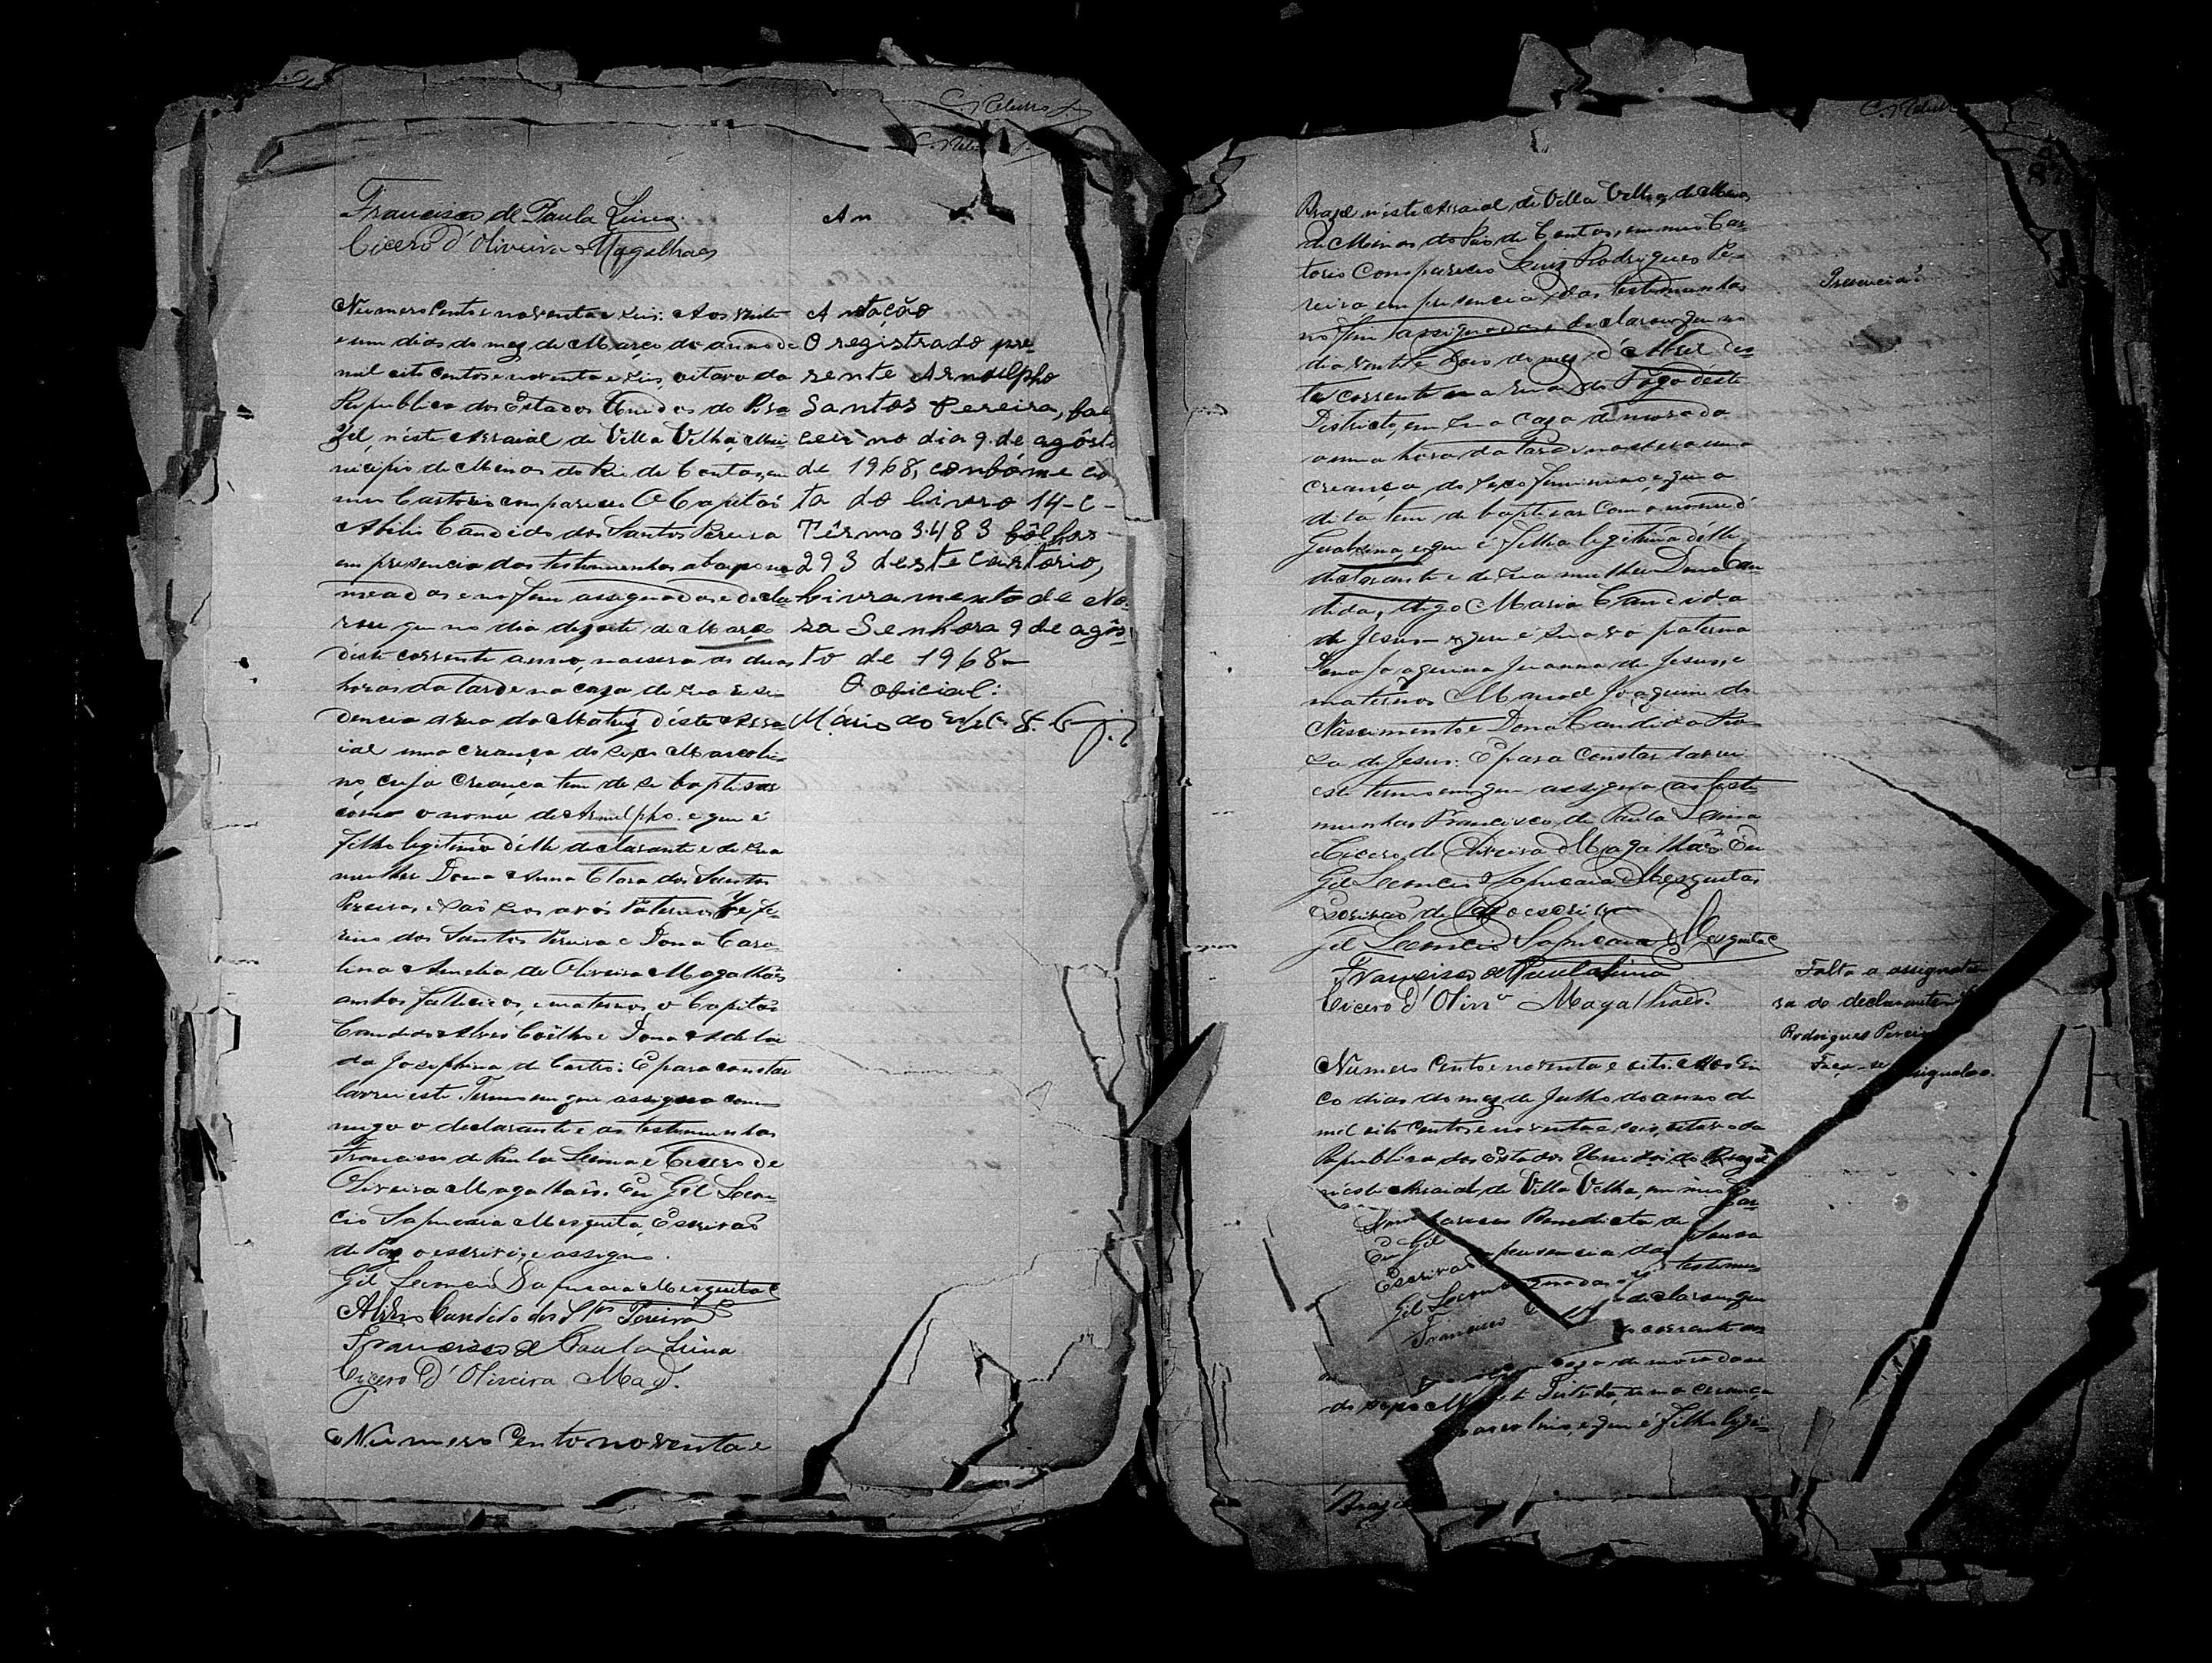 C. Ribeiro
Francisco de Paula Lima
Cicero d'Oliveira Magalhaes
Numero Cento e noventa e seis: Aos vinte
e um dias do mez de Março do anno de
mil oito centos e noventa e seis, oitavo da
Republica dos Estados Unidos do Bra
zil, n'este Arraial de Villa Velha, Mu
nicipio de Minas do Rio de Contas, em
meu Cartorio compareceu O Capitaõ
Abilio Candido dos Santos Pereira
em presencia das testemunhas abaixo no
meadas e no fim assignadas e decla
rou que no dia dezsete de Março
d'este corrente anno, nascera as duas
horas da tarde na caza de sua resi
dencia a rua da Matriz d'este Arra
ial uma creança do sexo Masculi
no, cuja creança tem de se baptisar
como o nome de Arnulpho e que é
filho legitimo d'elle declarante e de sua
mulher Dona Anna Clara dos Santos
Pereira, e saõ seos avós Paternos Zefe
rino dos Santos Pereira e Dona Caro
lina Amelia de Oliveira Magalhães
ambos fallecidos, e maternos, o Capitaõ
Candido Alves Coêlho e Dona Adelai
da Josephina de Castro: E para constar
lavrei este Termo em que assigna com
migo o declarante e as testemunhas
Francisco de Paula Lima e Cicero de
Oliveira Magalhaẽs. Eu Gil Leon
cio Sapucaia Mesquita, Escrivaõ
de Paz o escrivi, e assigno.
Gil Leoncio Sapucaia Mesquita
Abilio Candido dos Stos Pereira
Francisco de Paula Lima
Cicero D'Oliveira Mag.
Numero Cento noventa e
An
Anotação
O registrado pre
sente Arnulpho
Santos Pereira, fale
ceu no dia 9 de agôsto
de 1968, confórme co
ta do livro 14-C-
Têrmo 3.483 fôlhas
293 deste Cartório,
Livramento de Nos
sa Senhora 9 de agôs
to de 1968-
O oficial:
C. Ribeiro
Brazil n'este Arraial de Villa Velha, de Minas
de Minas do Rio de Contas, em meu Car
torio Compareceo Luiz Rodrigues Pe-
reira em presencia das testemunhas
no fim assignadas e declarou que no
dia vinte e dois do mez d'Abril des
te corrente na rua do Fogo d'este
Districto, em sua caza de morada
a uma hora da tarde nascera uma
creança do sexo feminino, e que a
dita tem de baptisar com o nome d
Geraldina, e que é filha legitima d'elle
declarante e de sua mulher Dona Can
dida, digo Maria Candida
de Jesus e que é sua vó paterna
Dona Joaquina Joanna de Jesus, e
maternos Manoel Joaquim do
Nascimento e Dona Candida Ro
sa de Jesus: E para constar lavrei
este termo em que assigna as teste
munhas Francisco de Paula Lima
Cicero de Oliveira Magalhaẽs Eu
Gil Leoncio Sapucaia Mesquita
Escrivaõ de Paz o escrivi
Gil Leoncio Sapucaia Mesquita
Francisco de Paula Lima
Cicero d'Olivrª Magalhães.
Numero Cento e noventa e oito: Aos Cin
co dias do mez de Julho do anno de
mil oito centos e noventa e seis, oitavo da
Republica dos Estados Unidos do Brazil
n'este Arraial de Villa Velha, em meo Car
Benedicta de Souza
Eu Gil presencia das
Escrivaõ testemu
Gil Leonc declarou que
Francisco corrente an
caza de morada
do sexo uma creança
e que é filho legi-
Brazil
Presencia?
Falta a assignatu
ra do declarante
Rodrigues Pereira